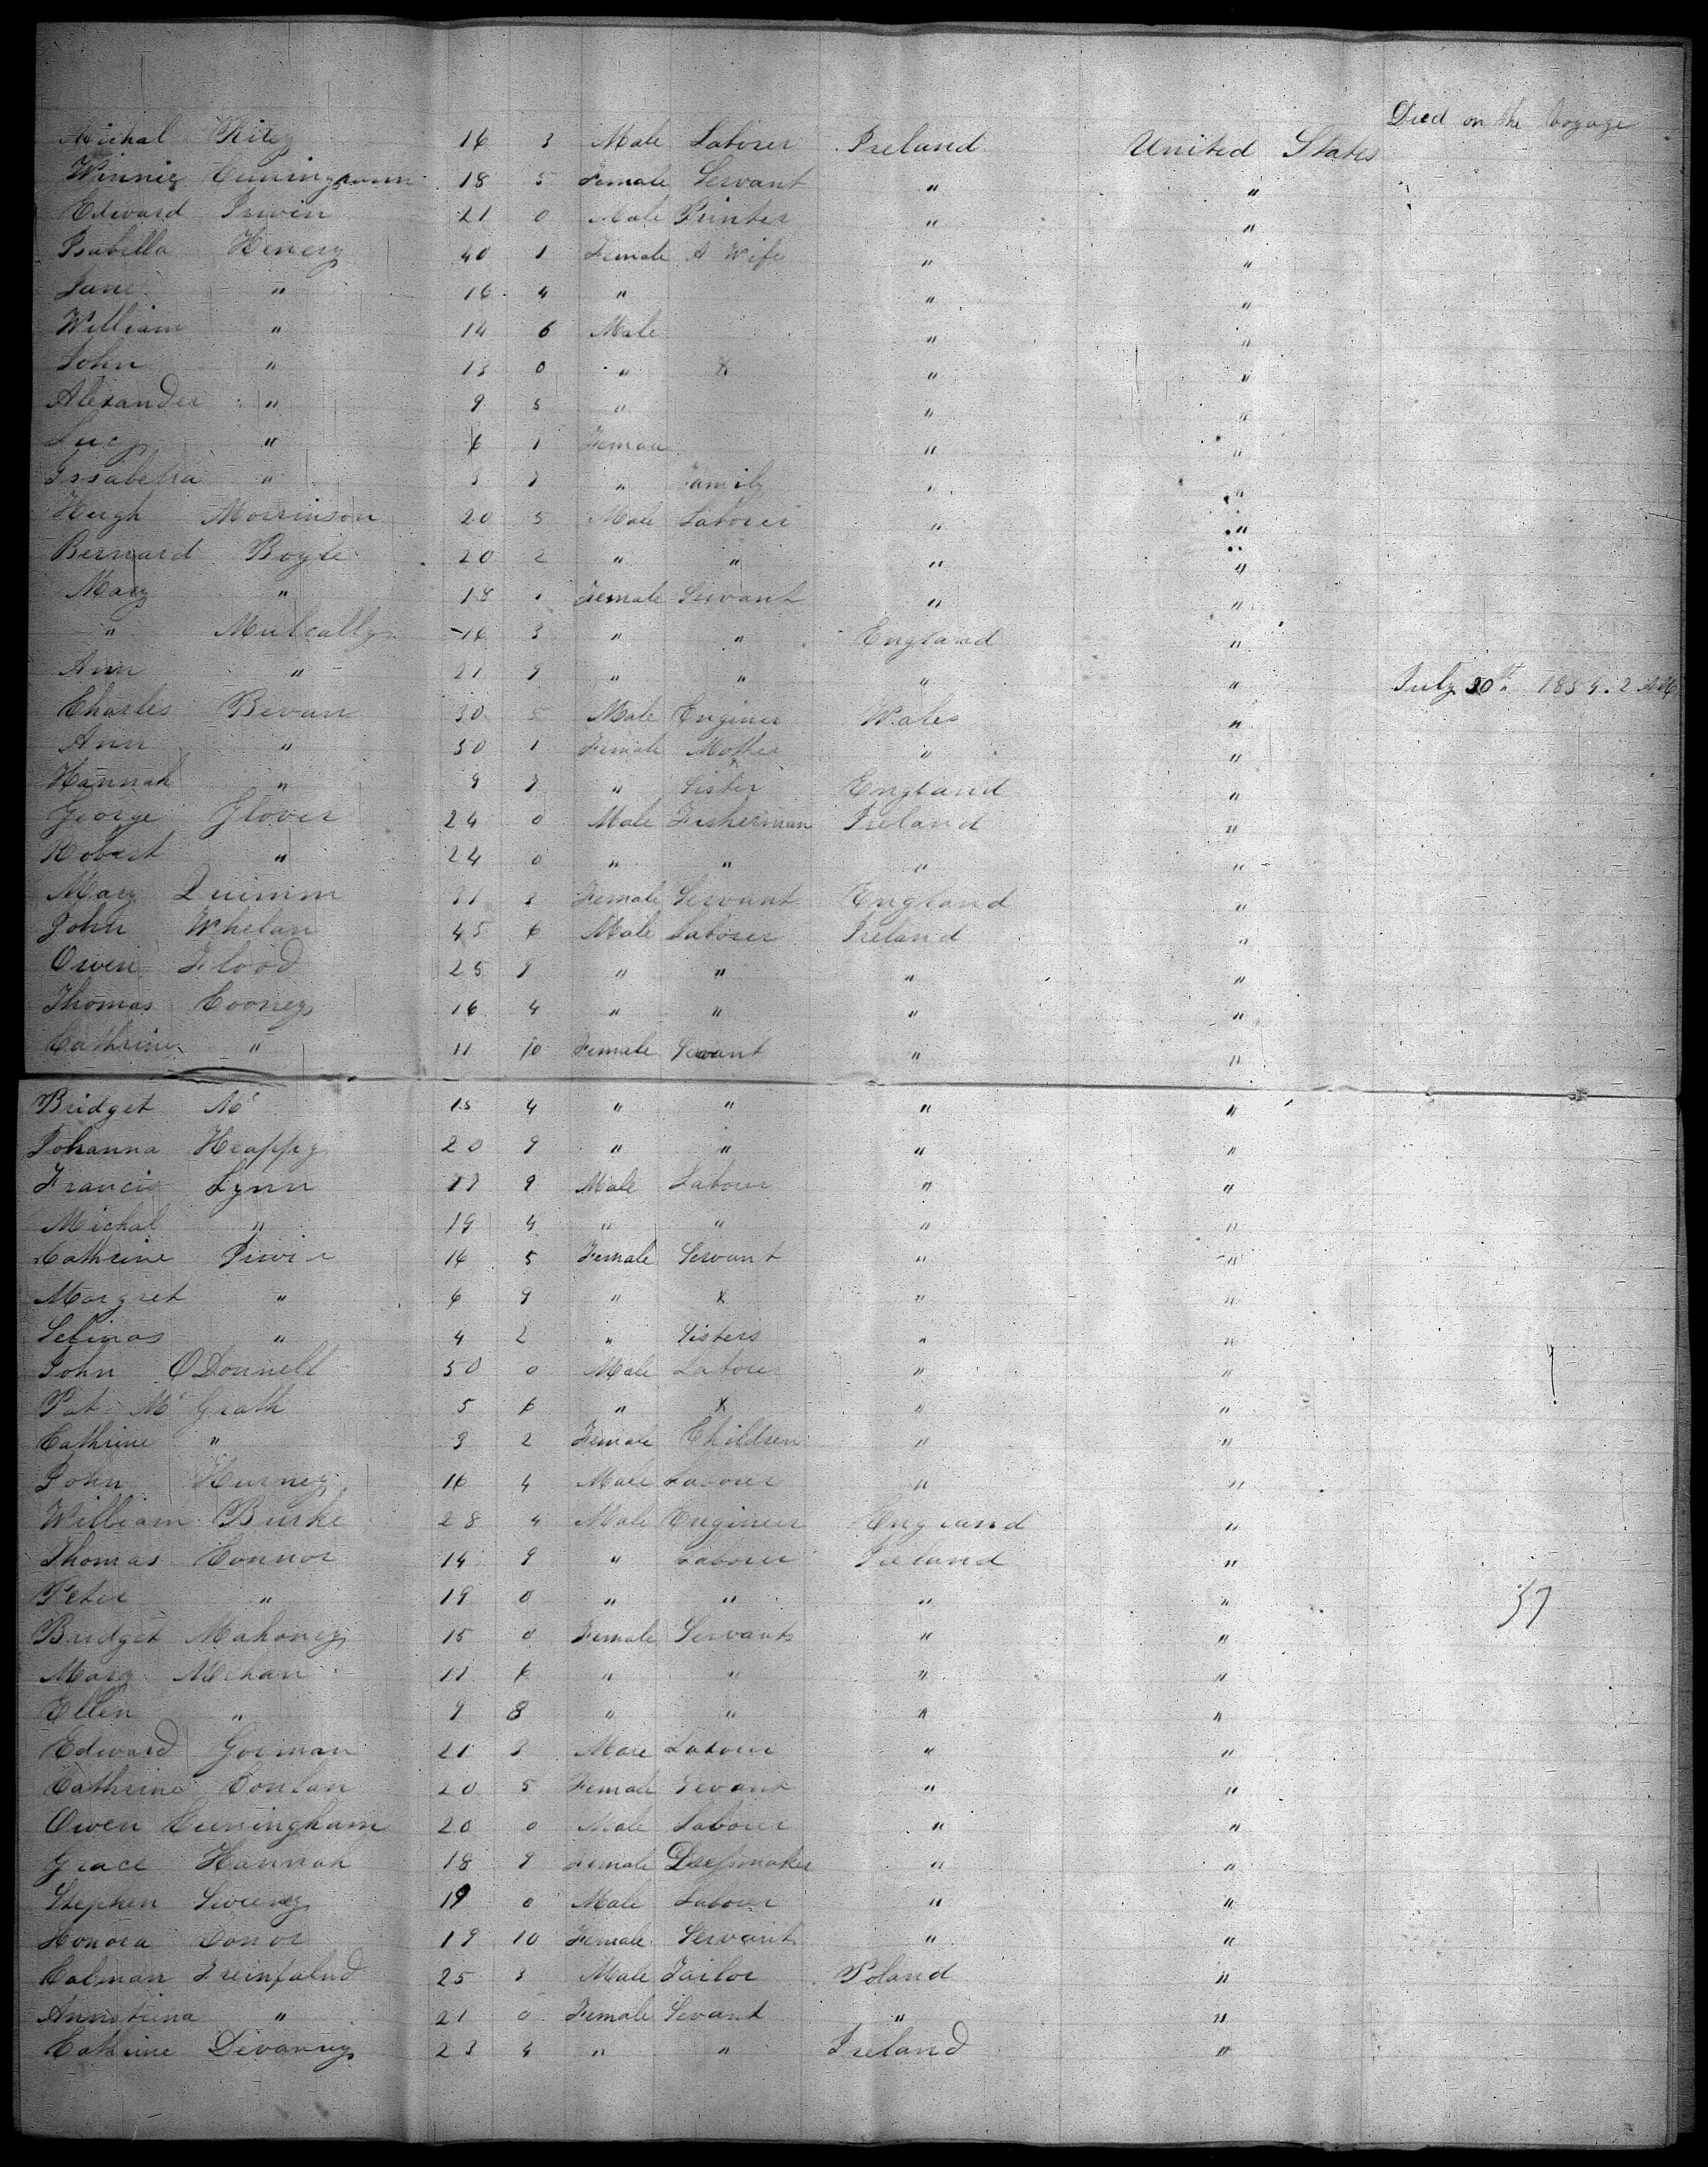 Died on the Voyage
Michal 16 3 Male Laborer Ireland United States
Winnie 18 5 Female Servant " "
Edward Irwin 21 0 Male Printer " "
Isabella Henery 40 1 Female A Wife " "
Jane " 16 4 " " "
William " 14 6 Male " "
John " 13 0 " x " "
Alexander " 9 5 " " "
Lucy " 6 1 Female " "
Issabella " " Family " "
Hugh Morrinson 20 5 Male Laborer " "
Bernard Boyle 20 2 " " " "
Mary " 18 Female Servant " "
" Mulcally 16 3 " " England "
Ann " 21 9 " " " " July 30th
Charles Bevan 30 5 Male Enginer Wales "
Ann " 50 1 Female Mother " "
Hannah " 9 " Sister England "
George Glover 24 0 Male Fisherman Ireland "
Robert " 24 0 " " " "
Mary Quinnn 21 3 Female Servant England "
John Whelan 45 6 Male Laborer Ireland "
Owen Flood 25 9 " " " "
Thomas Cooney 16 4 " " " "
Cathrine " 11 10 Female Servant " "
Bridget Mc 15 4 " " " "
Johanna Heappy 20 9 " " " "
Francis Lynn 17 9 Male Laborer " "
Michal " 19 4 " " " "
Cathrine Irwin 16 5 Female Servant " "
Margret " 6 9 " x " "
Selinas " 4 2 " Sisters " "
John O'Donnell 50 0 Male Laborer " "
Pat Mc Grath 5 6 " x " "
Cathrine " 3 2 Female Children " "
John Kurney 16 4 Male Laborer " "
William Burke 28 4 Male Engineer England "
Thomas Connor 14 9 " Laborer Ireland "
Peter " 19 0 " " " " 57
Bridget Mahoney 15 0 Female Servants " "
Mary Mehan 11 6 " " " "
Ellen " 9 8 " " " "
Edward Gorman 21 3 Male Laborer " "
Cathrine Conlan 20 5 Female Servant " "
Owen Cunningham 20 0 Male Laborer " "
Grace Hannah 18 9 Female Dressmaker " "
Stephen Sweeney 19 0 Male Laborer " "
Honora Conor 19 10 Female Servant " "
Calman 25 3 Male Tailor Poland "
" 21 0 Female Servant " "
Cathrine Devanny 23 4 " " Ireland "